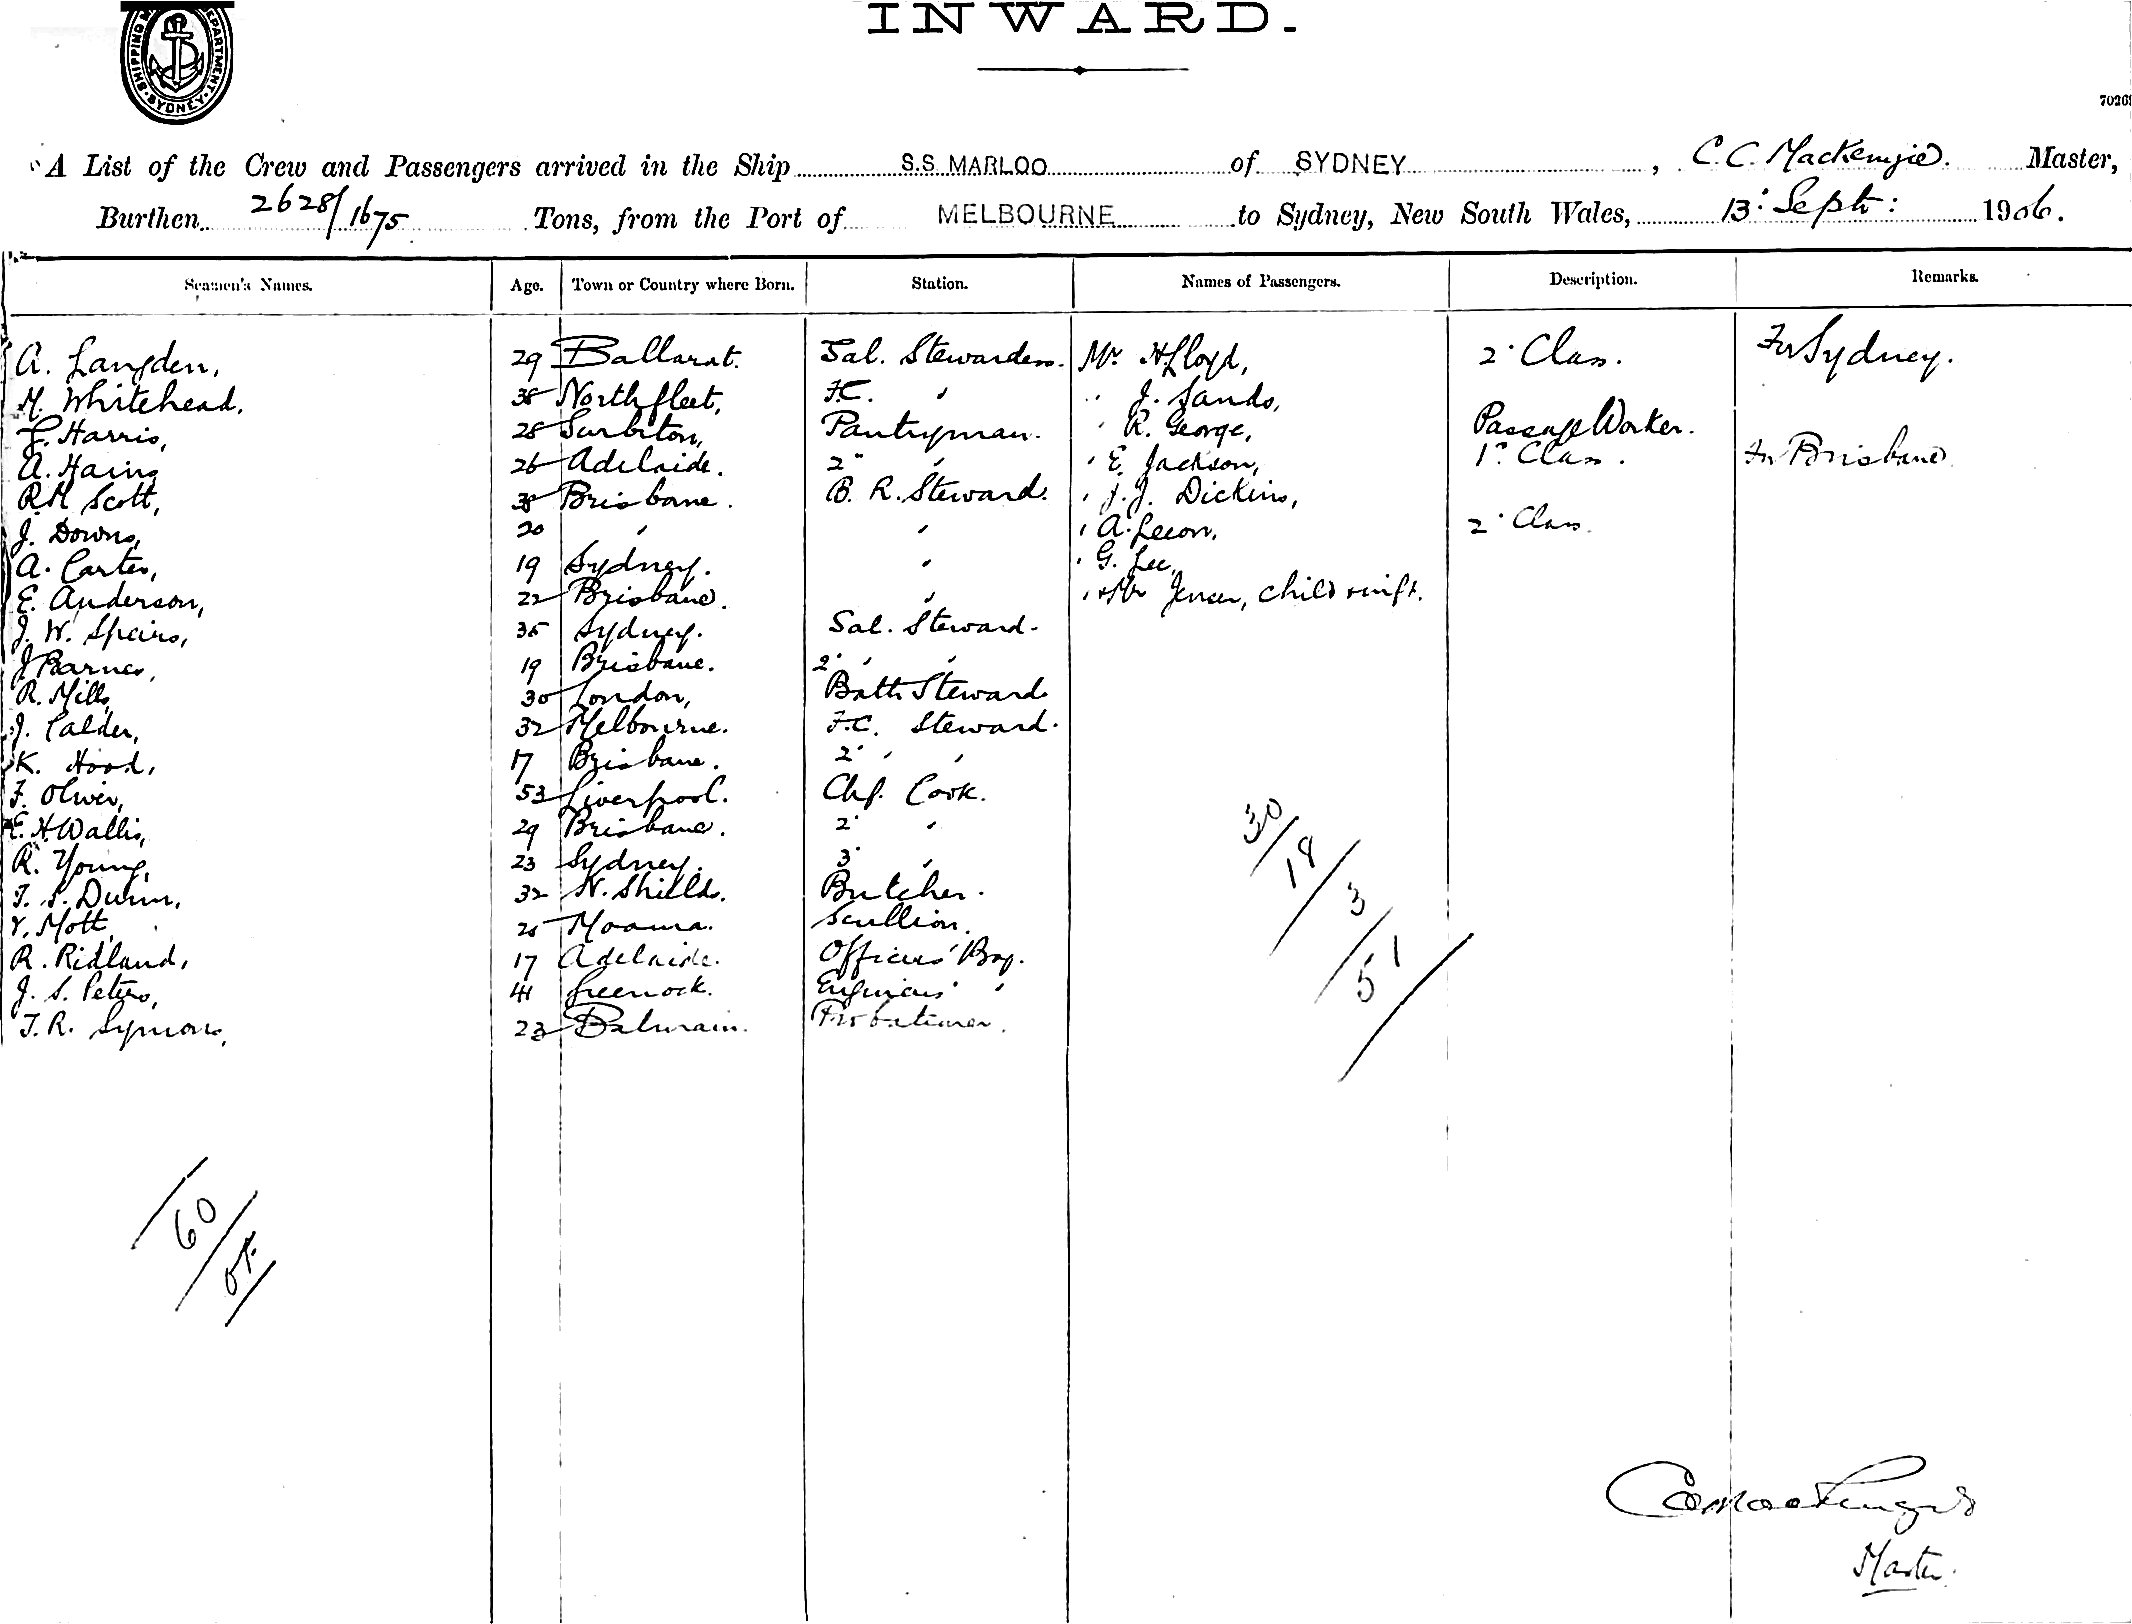 SHIPPING DEPARTMENT. SYDNEY
INWARD.
A List of the Crew and Passengers arrived in the Ship S.S. MARLOO of SYDNEY, C. C. Mackenzie. Master,
Burthen 2628/1675 Tons, from the Port of MELBOURNE to Sydney, New South Wales, 13: Sept: 1906.
Seamen's Names. Age. Town or Country where Born. Station. Names of Passengers. Description. Remarks.
A. Langden, 29 Ballarat. Sal. Stewardess. Mr. H Lloyd, 2' Class. For Sydney.
M. Whitehead, 38 Northfleet, F.C. " " J. Sands,
F. Harris, 28 Surbiton, Pantryman. " R. George, Passage Worker.
A. Haing 26 Adelaide. 2" " " E. Jackson, 1" Class. For Brisbane
R.M Scott, Brisbane. B. R. Steward. " J. J. Dickins,
J. Downs, 20 " " " A. Lecon, 2' Class.
A. Carter, 19 Sydney. " " G. Lee,
E. Anderson, 22 Brisbane. " " Jensen, child & inft.
J. W. Speirs, 35 Sydney. Sal. Steward.
J Barnes, 19 Brisbane. 2' " "
R. Mills, 30 London, Bath Steward
J. Calder, 32 Melbourne. F.C. Steward.
K. Hood, 17 Brisbane. 2' " "
F. Oliver, 53 Liverpool. Chf. Cook.
E. H Wallis, 29 Brisbane. 2' "
R. Young, 23 Sydney. 3' "
T. S. Dunn, 32 N. Shields. Butcher.
Y. Mott, 25 Moama. Scullion.
R. Ridland, 17 Adelaide. Officers' Boy.
J. S. Peters, 41 Greenock. Engineers' "
T. R. Symons, 23 Balmain. Probationer.
30/18/3/51
60/
C C Mackenzie
Master.